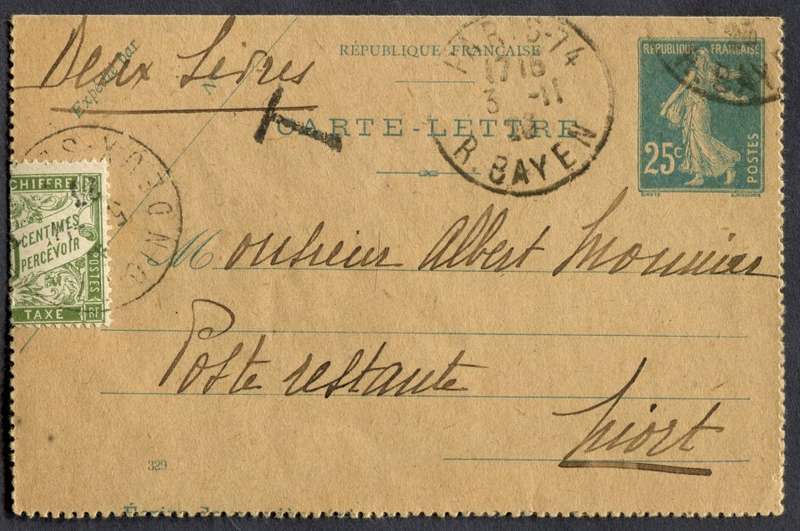 RÉPUBLIQUE FRANÇAISE
Deux Sèvres
Expédié par
CARTE-LETTRE
17 15
3 -11
R. BAYEN
RÉPUBLIQUE FRANÇAISE
25c
POSTES
CHIFFRE
CENTIMES
À
PERCEVOIR
POSTES
TAXE
T
Monsieur Albert Monnier
Poste restante
Niort
329